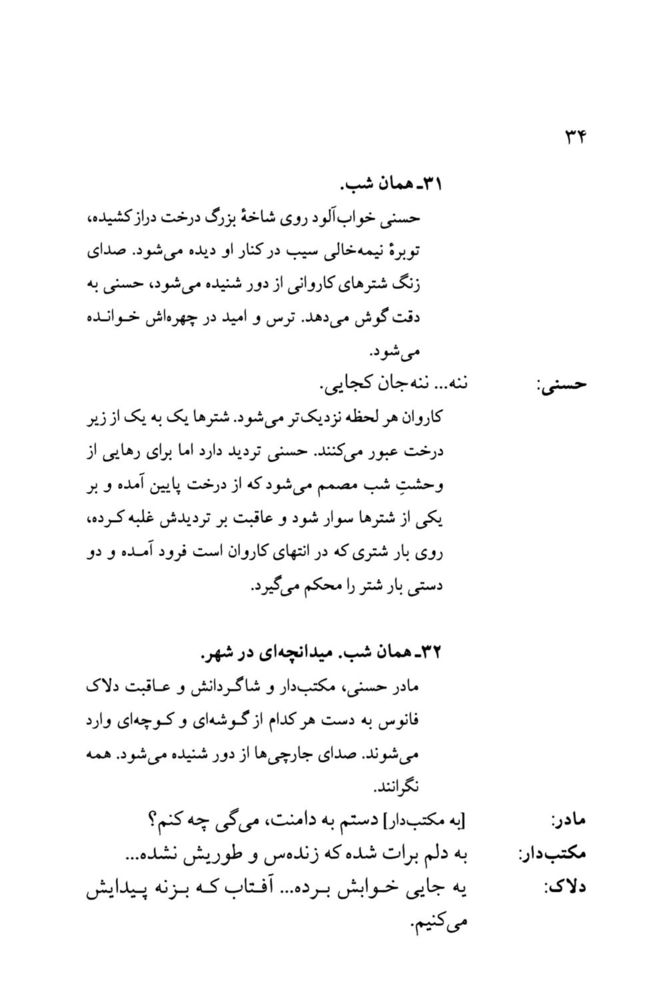 ۳۴
۳۱ـ همان شب.
حسنی خواب‌آلود روی شاخهٔ بزرگ درخت دراز کشیده،
توبرهٔ نیمه‌خالی سیب در کنار او دیده می‌شود. صدای
زنگ شترهای کاروانی از دور شنیده می‌شود، حسنی به
دقت گوش می‌دهد. ترس و امید در چهره‌اش خوانده
می‌شود.
حسنی: ننه... ننه‌جان کجایی.
کاروان هر لحظه نزدیک‌تر می‌شود. شترها یک به یک از زیر
درخت عبور می‌کنند. حسنی تردید دارد اما برای رهایی از
وحشتِ شب مصمم می‌شود که از درخت پایین آمده و بر
یکی از شترها سوار شود و عاقبت بر تردیدش غلبه کرده،
روی بار شتری که در انتهای کاروان است فرود آمده و دو
دستی بار شتر را محکم می‌گیرد.
۳۲ـ همان شب. میدانچه‌ای در شهر.
مادر حسنی، مکتب‌دار و شاگردانش و عاقبت دلاک
فانوس به دست هر کدام از گوشه‌ای و کوچه‌ای وارد
می‌شوند. صدای جارچی‌ها از دور شنیده می‌شود. همه
نگرانند.
مادر: [به مکتب‌دار] دستم به دامنت، می‌گی چه کنم؟
مکتب‌دار: به دلم برات شده که زنده‌س و طوریش نشده...
دلاک: یه جایی خوابش برده... آفتاب که بزنه پیدایش
می‌کنیم.